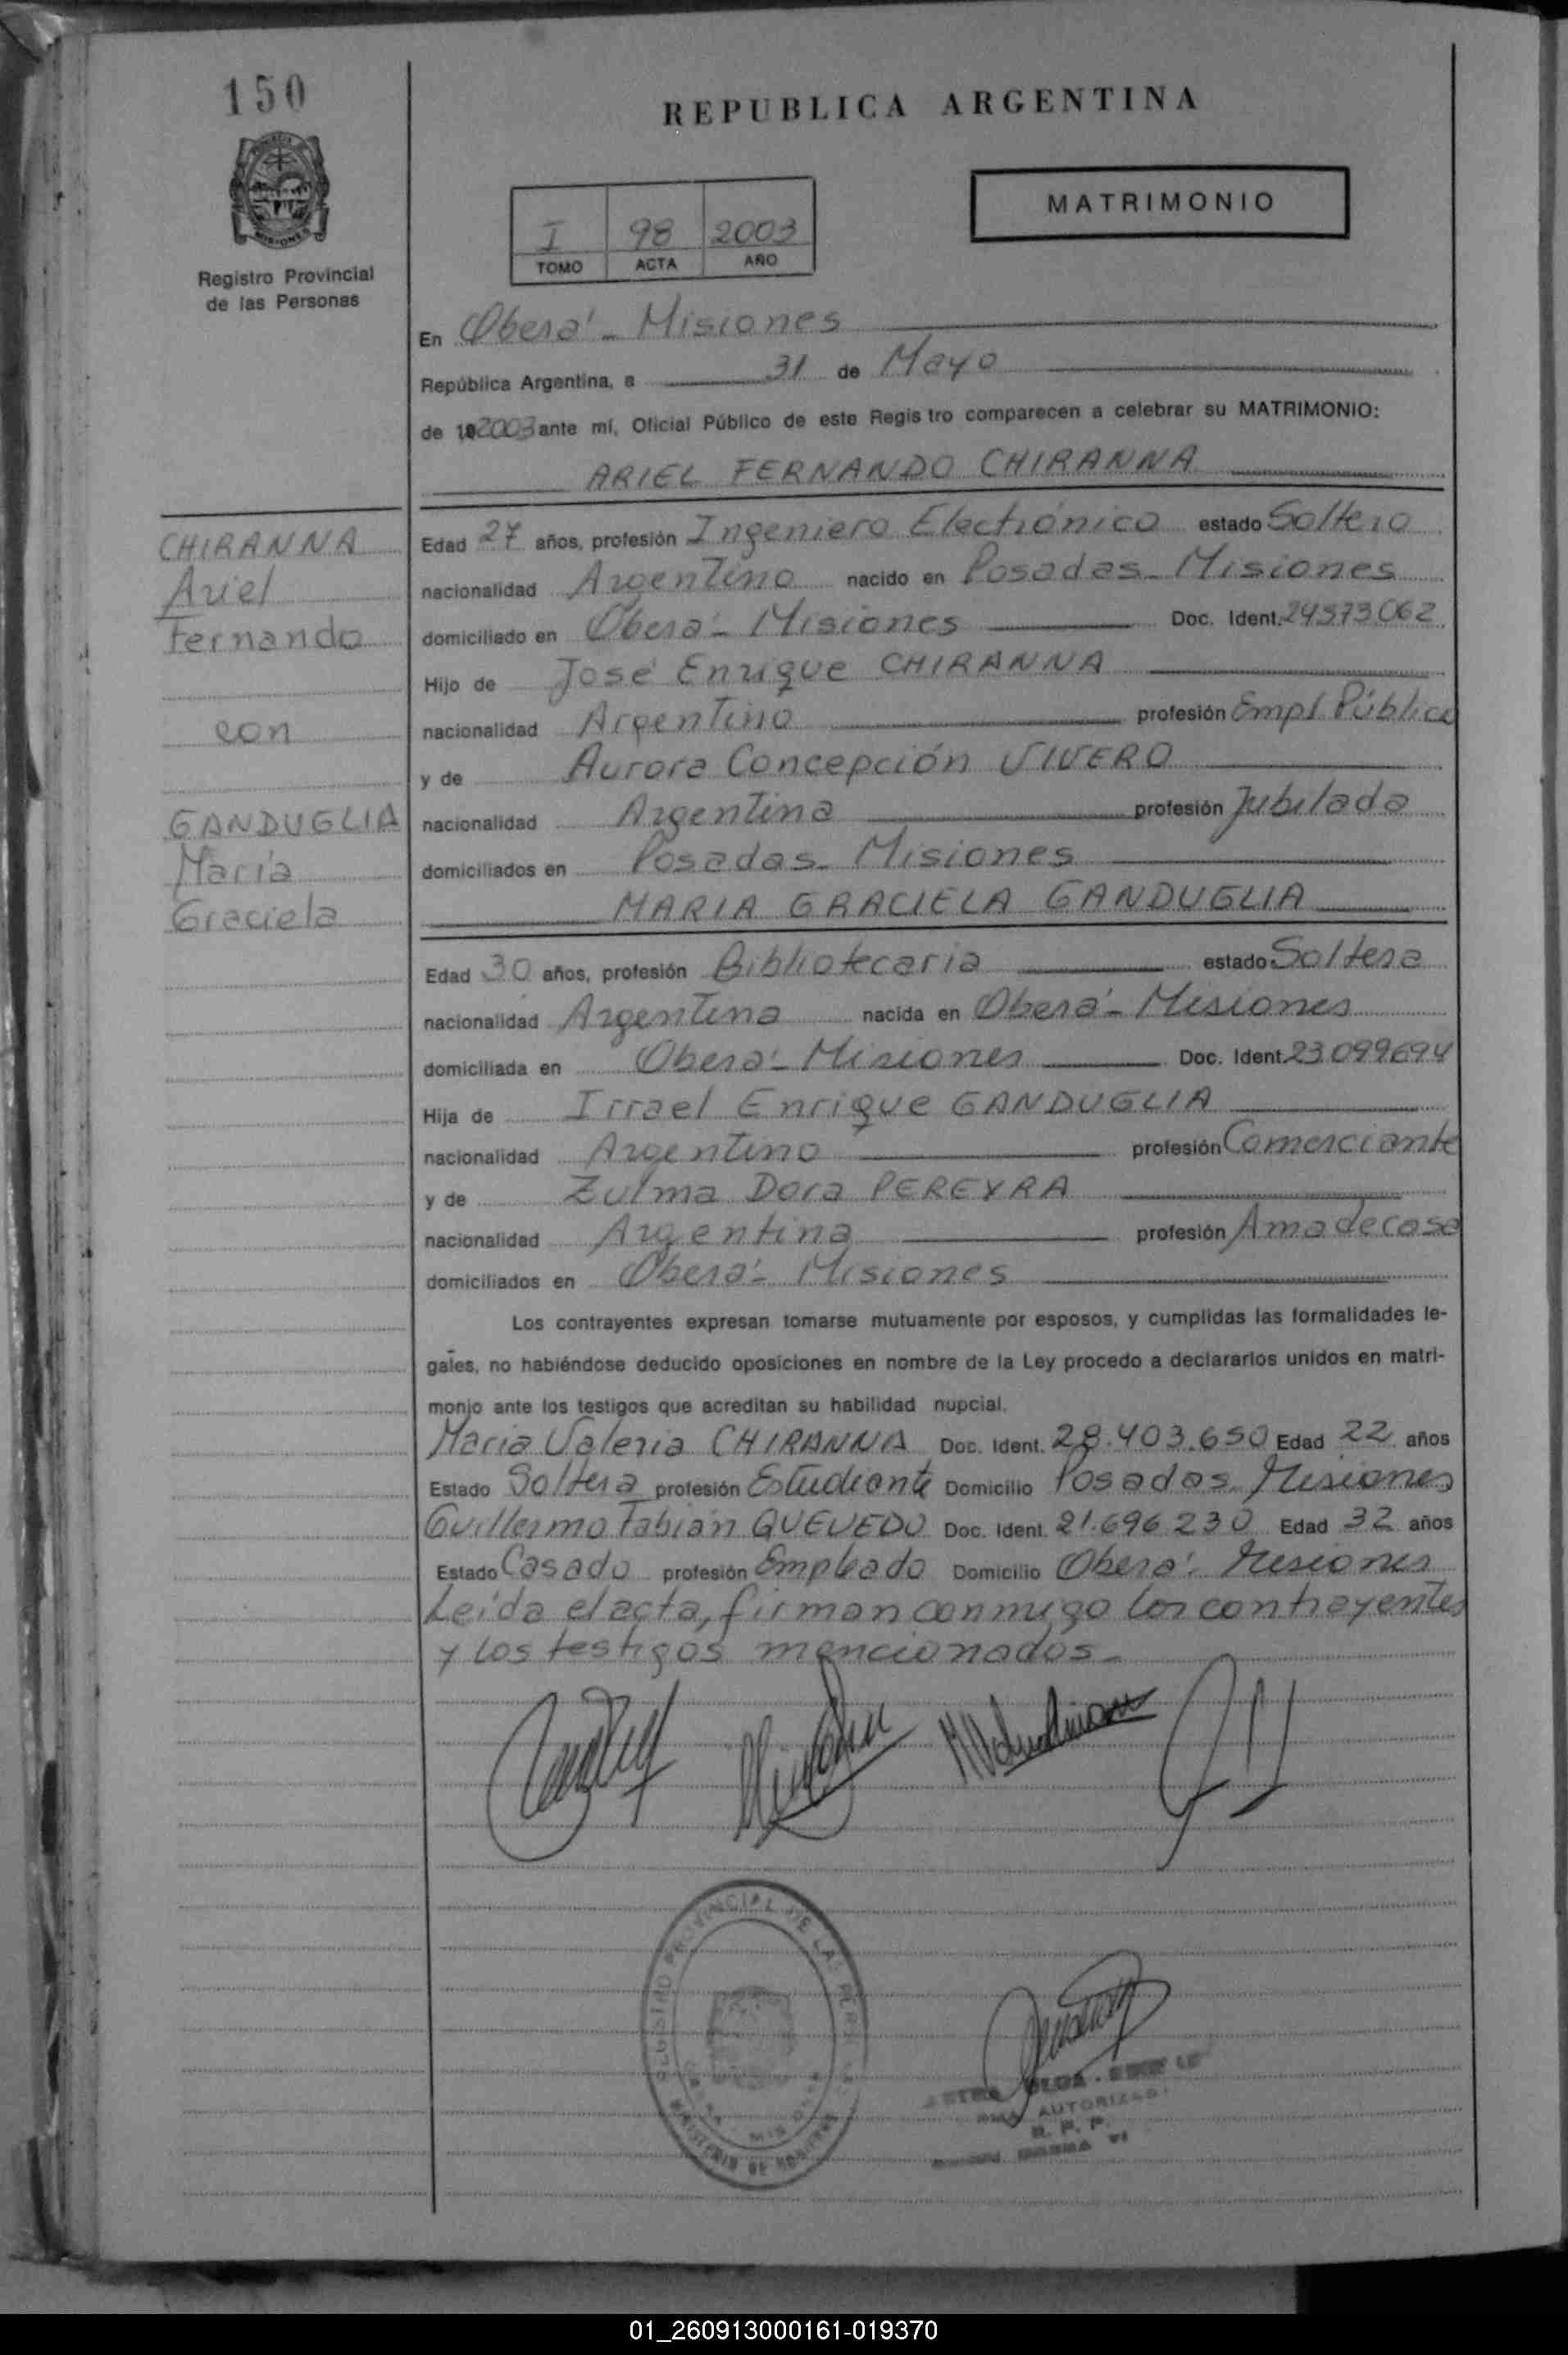 150
REPUBLICA ARGENTINA
MATRIMONIO
I 98 2003
TOMO ACTA AÑO
Registro Provincial
de las Personas
En Oberá - Misiones
República Argentina, a 31 de Mayo
de 2003 ante mí, Oficial Público de este Regis tro comparecen a celebrar su MATRIMONIO:
ARIEL FERNANDO CHIRANNA
CHIRANNA
Ariel
Fernando
con
GANDUGLIA
María
Graciela
Edad 27 años, profesión Ingeniero Electrónico estado Soltero
nacionalidad Argentino nacido en Posadas - Misiones
domiciliado en Oberá - Misiones Doc. Ident. 24573062
Hijo de José Enrique CHIRANNA
nacionalidad Argentino profesión Empl Público
y de Aurora Concepción VIVERO
nacionalidad Argentina profesión Jubilada
domiciliados en Posadas - Misiones
MARIA GRACIELA GANDUGLIA
Edad 30 años, profesión Bibliotecaria estado Soltera
nacionalidad Argentina nacida en Oberá - Misiones
domiciliada en Oberá - Misiones Doc. Ident. 23.099694
Hija de Irrael Enrique GANDUGLIA
nacionalidad Argentino profesión Comerciante
y de Zulma Dora PEREYRA
nacionalidad Argentina profesión Ama de casa
domiciliados en Oberá - Misiones
Los contrayentes expresan tomarse mutuamente por esposos, y cumplidas las formalidades le-
gales, no habiéndose deducido oposiciones en nombre de la Ley procedo a declararlos unidos en matri-
monio ante los testigos que acreditan su habilidad nupcial.
María Valeria CHIRANNA Doc. Ident. 28.403.650 Edad 22 años
Estado Soltera profesión Estudiante Domicilio Posadas Misiones
Guillermo Fabián QUEVEDO Doc. Ident. 21.696.230 Edad 32 años
Estado Casado profesión Empleado Domicilio Oberá - Misiones
Leída el acta, firman conmigo los contrayentes
y los testigos mencionados -
REGISTRO PROVINCIAL DE LAS PERSONAS
MINISTERIO DE GOBIERNO
OLGA
AUTORIZADA
R. P. P.
01_260913000161-019370